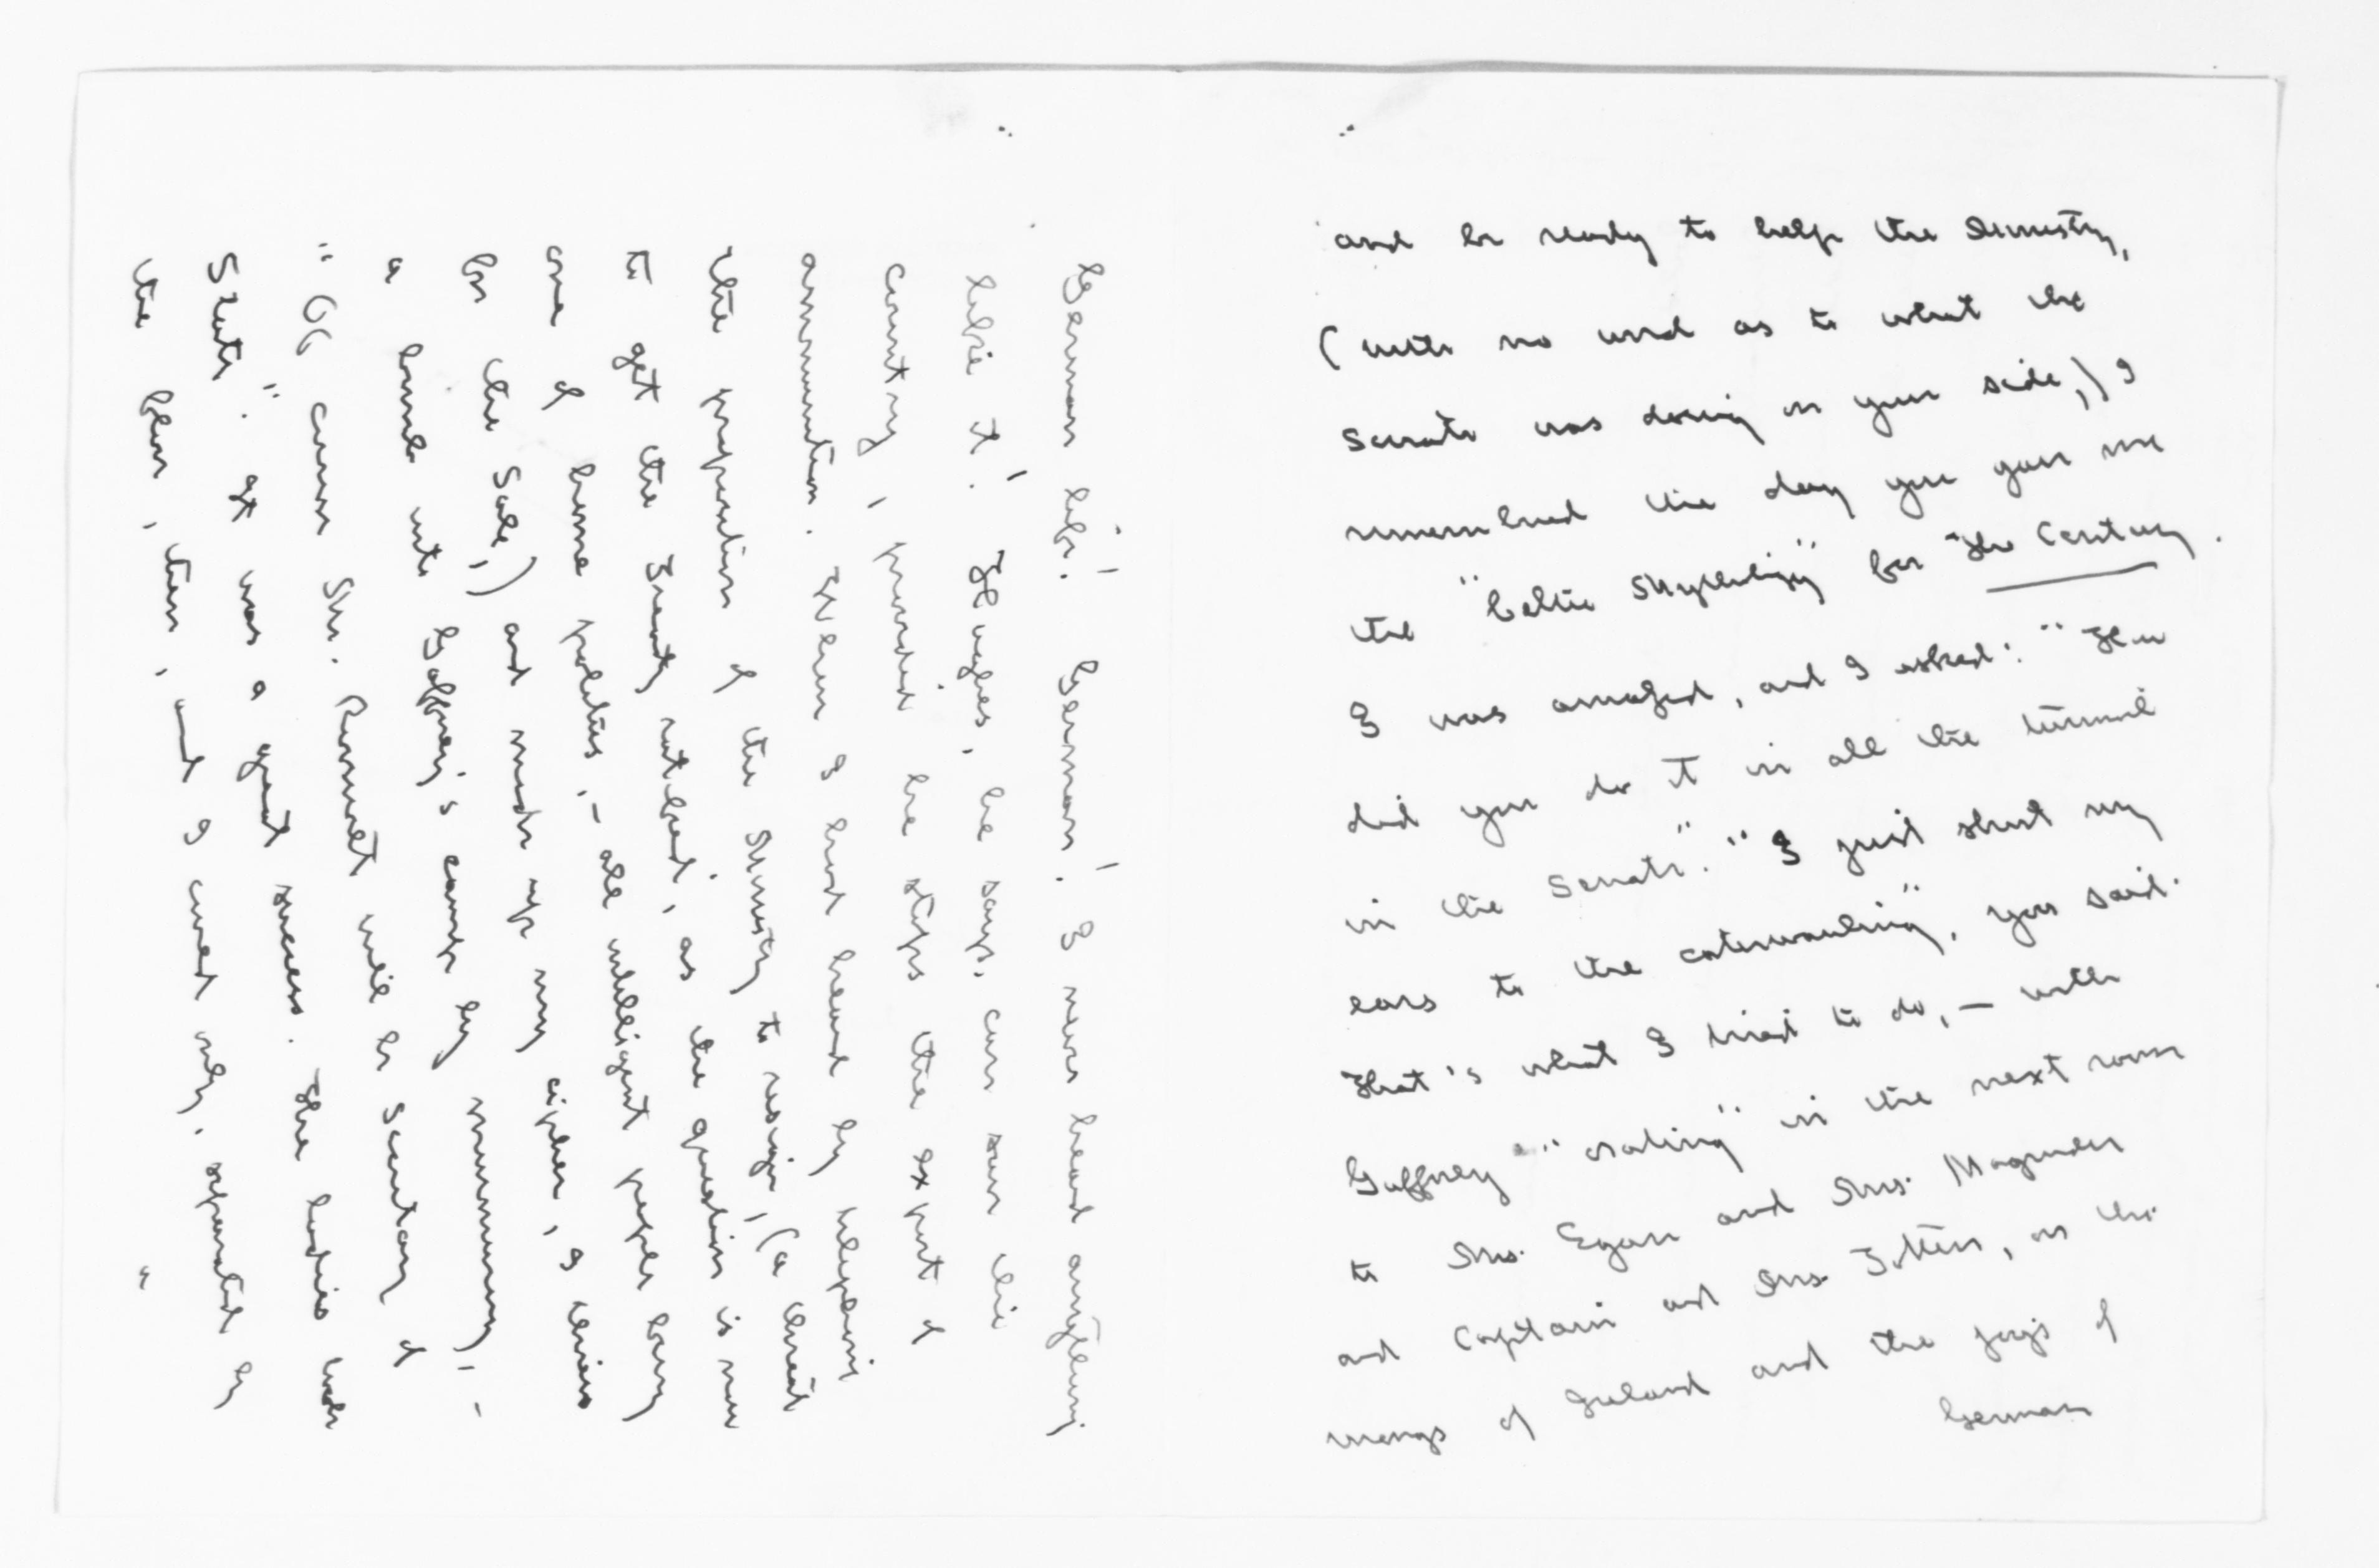 and be ready to help the Ministry,
(with no word as to what the
Senate was doing on your side,) I
remembered the day you gave me
the "Celtic Mythology" for The Century.
I was amazed, and I asked: "How
did you do it in all the turmoil
in the Senate". "I just shut my
ears to the caterwauling", you said.
That's what I tried to do, — with
Gaffney "orating" in the next room
to Mrs. Egan and Mrs. Magruder
and Captain and Mrs. Totten, on the
wrongs of Ireland and the joys of
German
German life! German! I never heard anything
like it! Hughes, he says, can save the
country, — provided he stops the export of
ammunition. When I had heard by telephone
the proposition of the Ministry to resign, — (a threat
to get the treaty ratified, as the question is now
one of home politics, — all intelligent people being
for the sale,) and made up my cipher, I threw
a bomb into Gaffney's camp by announcing, —
"Of course Mr. will be Secretary of
State". It was a great success. The ladies left
the then, but I only, repeated by